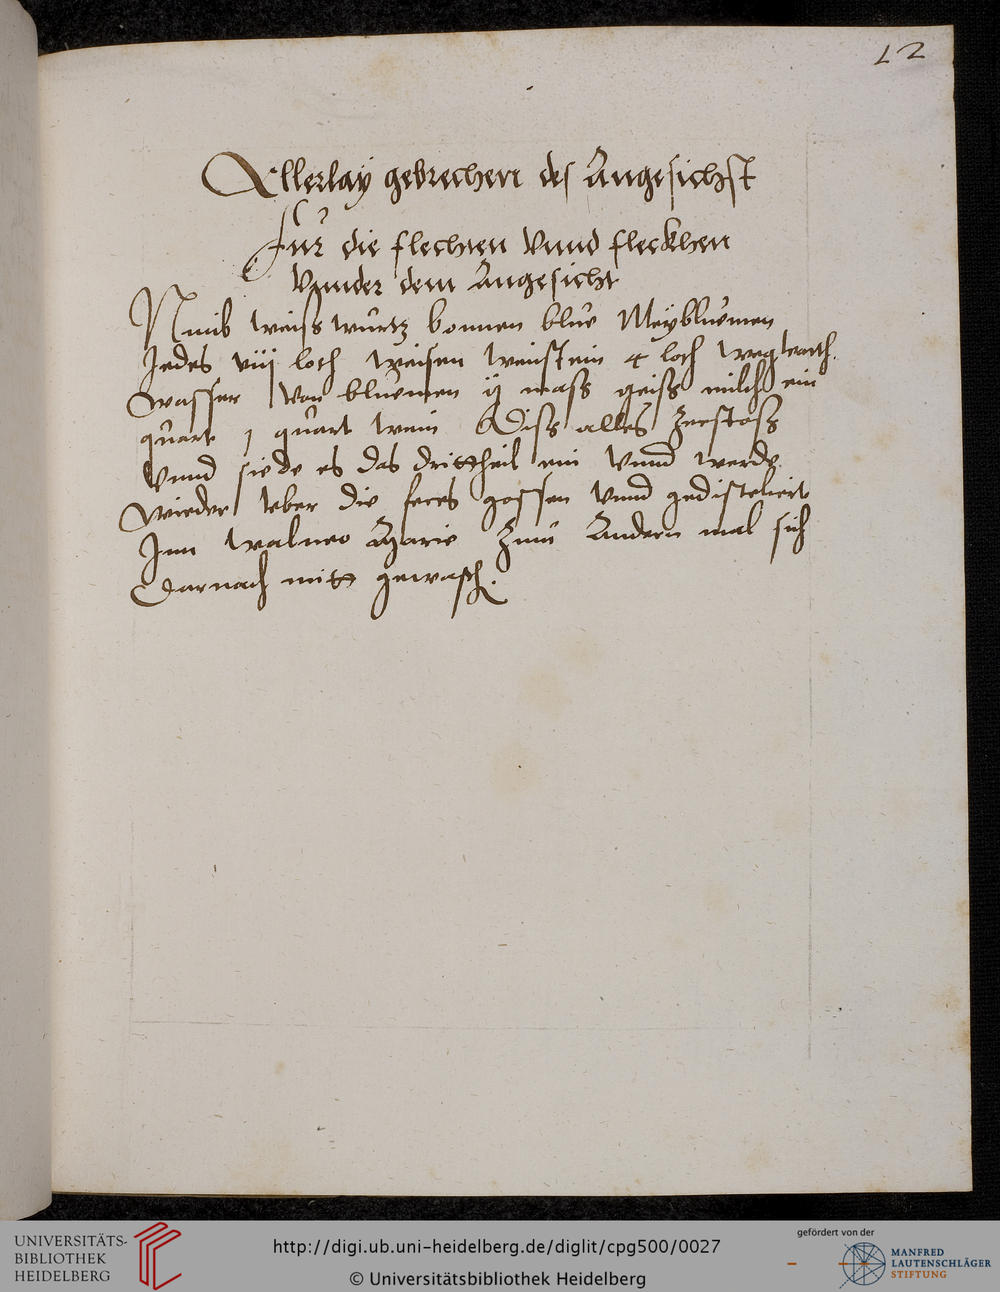 12
Allerlaÿ gebrechen des Angesichst
Fur die flechten Vnnd fleckhen
Vnnder dem Angesicht
Nimb weiss wurtz bonnen blue Meÿbluemen
Jedes viij loth weisen weinstein 4 loth wegwarth
wasser von bluemen ij mass geiss milch ein
quart 1 quart wein Diss alles Zerstoss
Vnnd siede es das drittheil ein Vnnd werde
wieder Vber die feces gossen Vnnd gedisteliert
Jnn walneo Marie Zum Andern mal sich
Darnach mitt gewasch.
UNIVERSITÄTS-
BIBLIOTHEK
HEIDELBERG
http://digi.ub.uni-heidelberg.de/diglit/cpg500/0027
© Universitätsbibliothek Heidelberg
gefördert von der
MANFRED
LAUTENSCHLÄGER
STIFTUNG